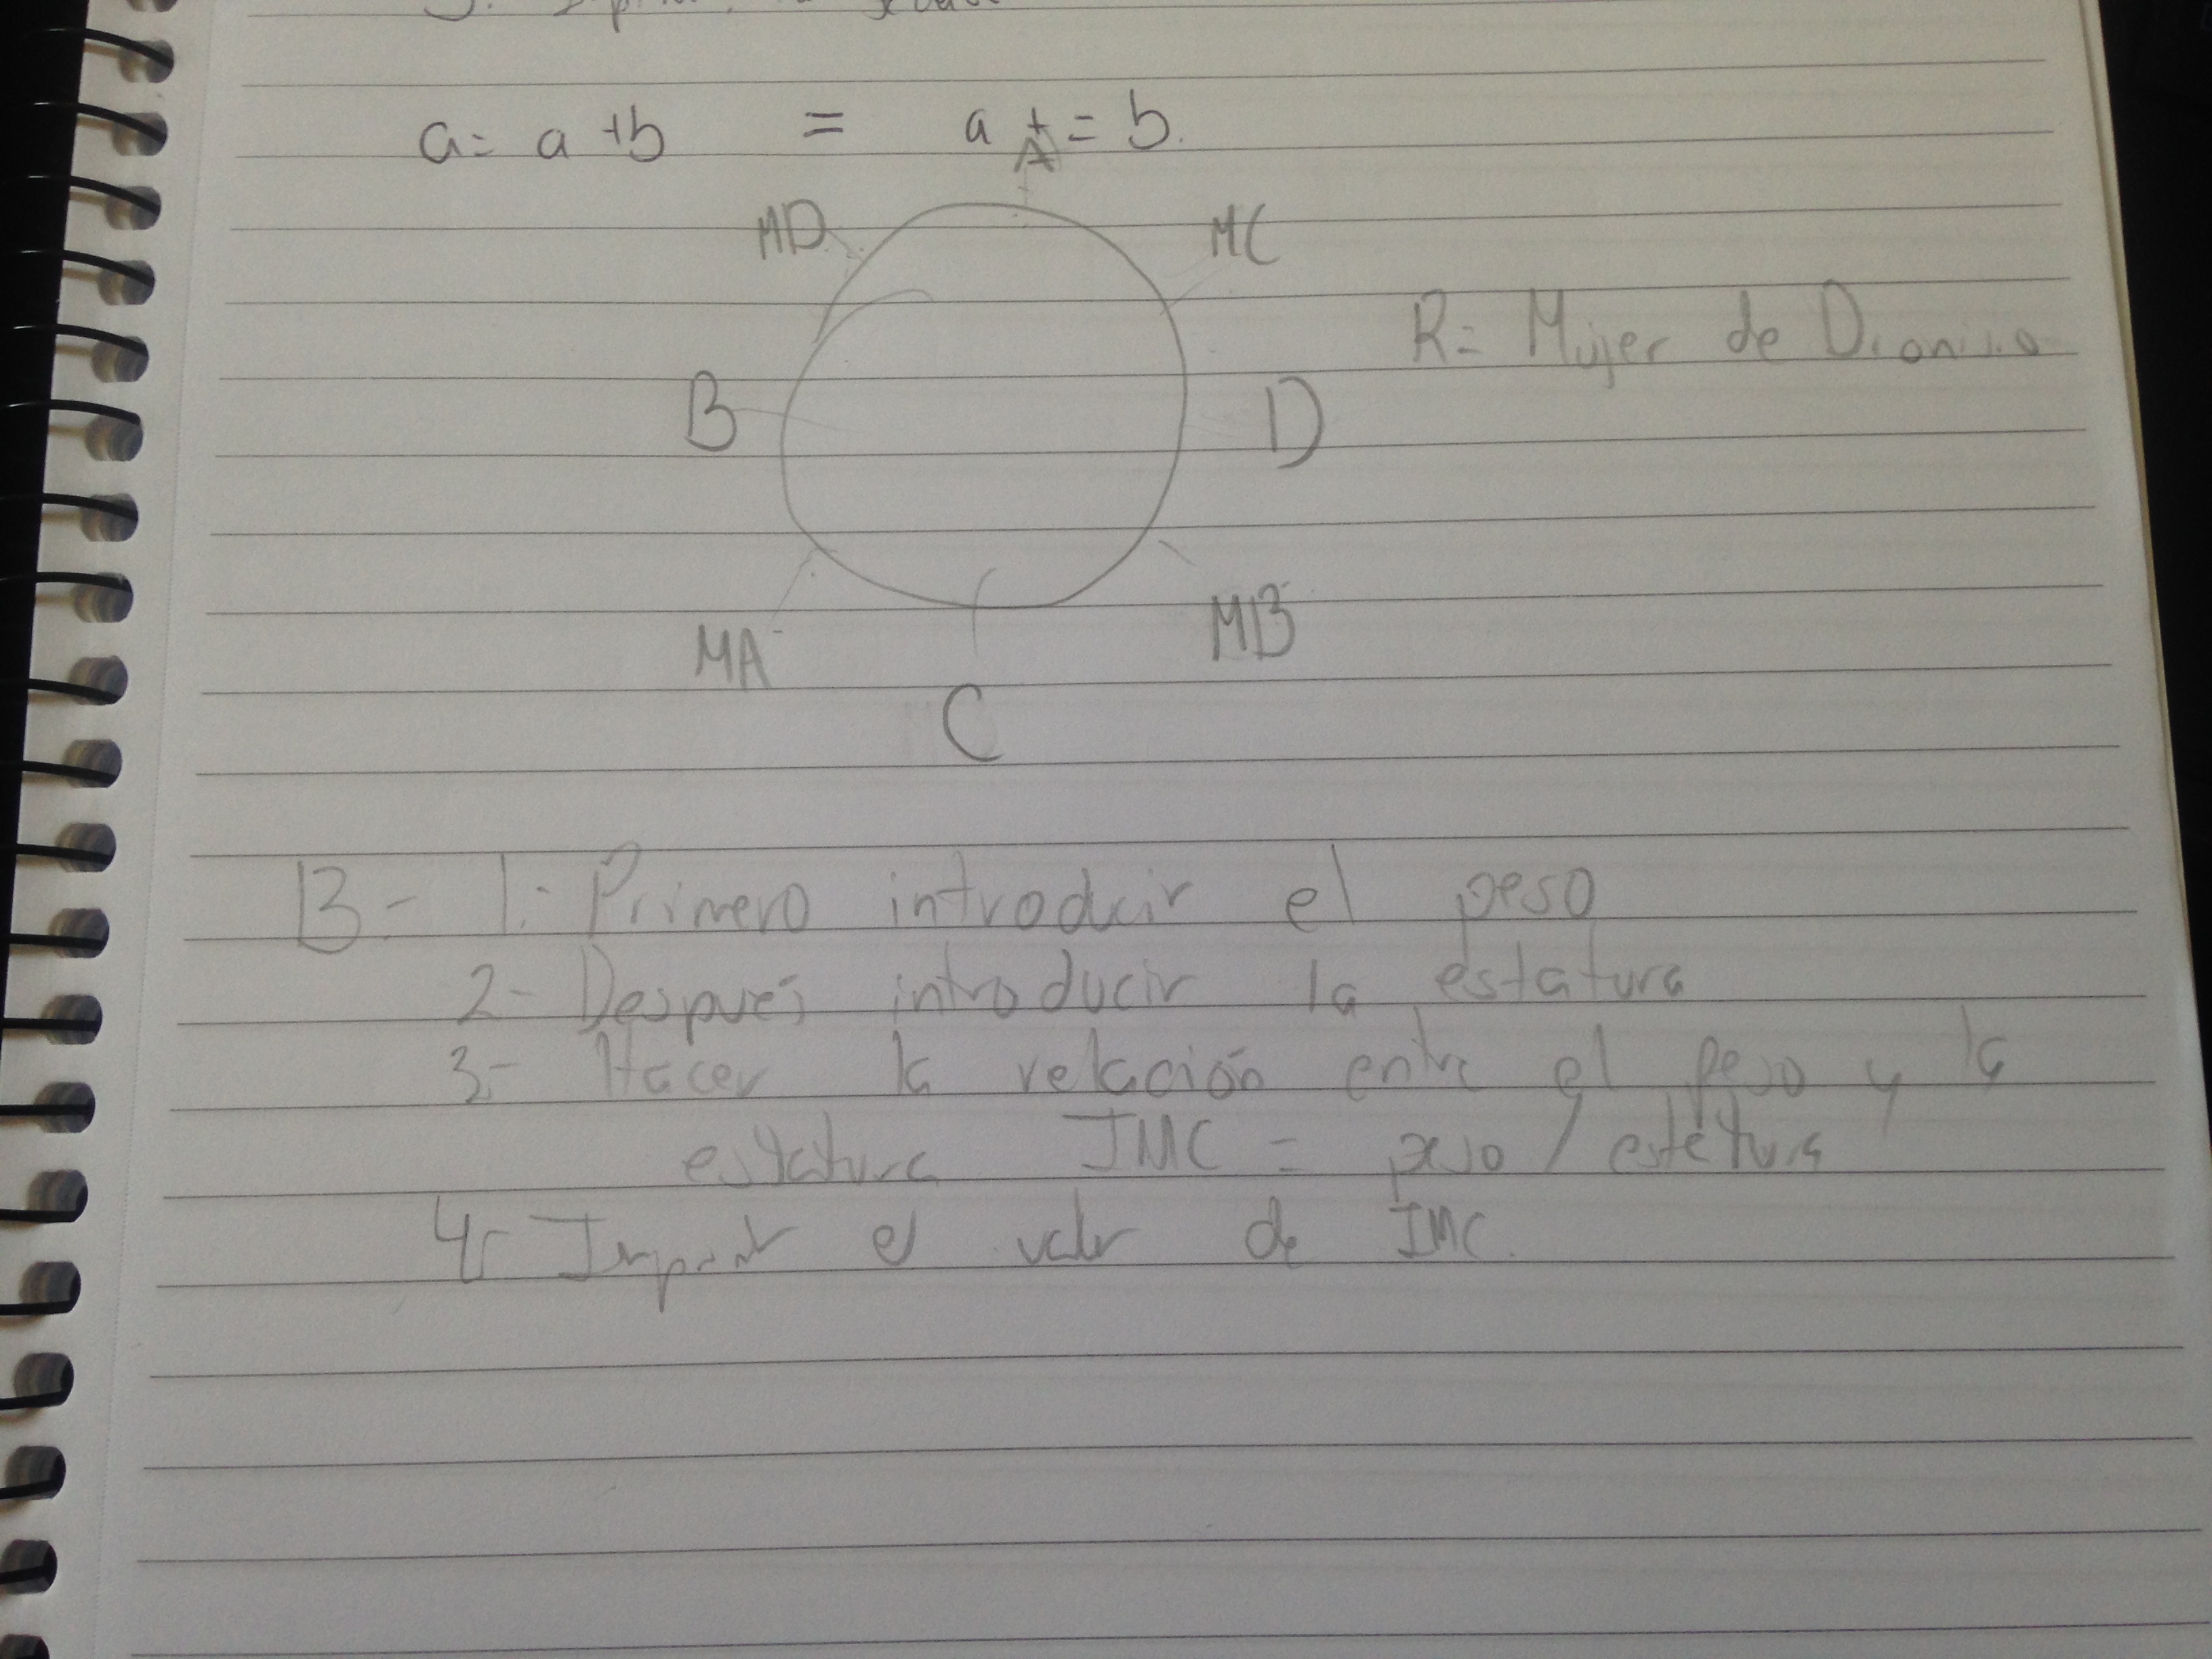 a = a + b = a += b.
A
MD MC
R= Mujer de Dionisio
B D
MA MB
C
B- 1.- Primero introducir el peso
2- Después introducir la estatura
3.- Hacer la relación entre el peso y la
estatura IMC = peso / estatura
4- Imprimir el valor de IMC.